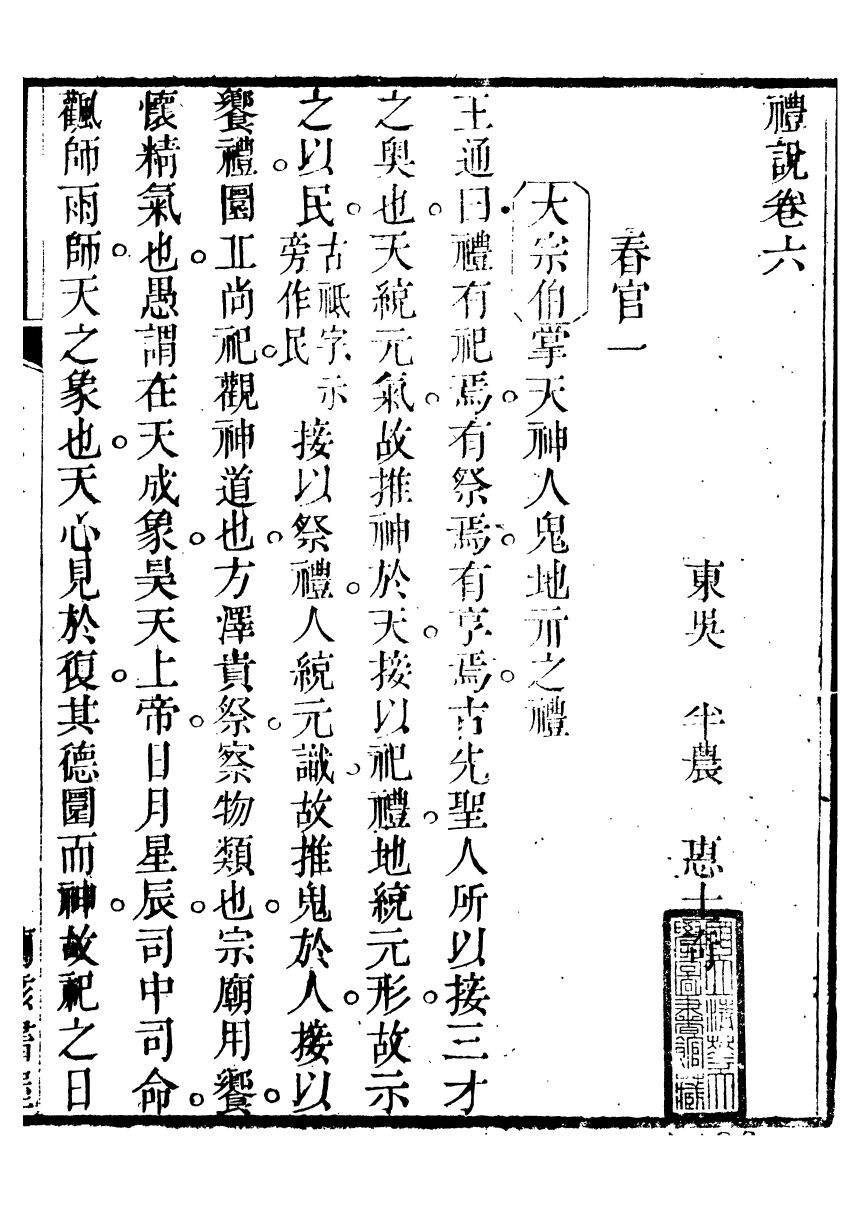 禮說卷六
東吳 半農 惠士
春官一
大宗伯掌天神人鬼地示之禮
王通曰禮有祀焉有祭焉有享焉古先聖人所以接三才
之奧也天統元氣故推神於天接以祀禮地統元形故示
之以民古祗字示旁作民接以祭禮人統元識故推鬼於人接以
饗禮圜丘尚祀觀神道也方澤貴祭察物類也宗廟用饗
懷精氣也愚謂在天成象昊天上帝日月星辰司中司命
飌師雨師天之象也天心見於復其德圓而神故祀之日